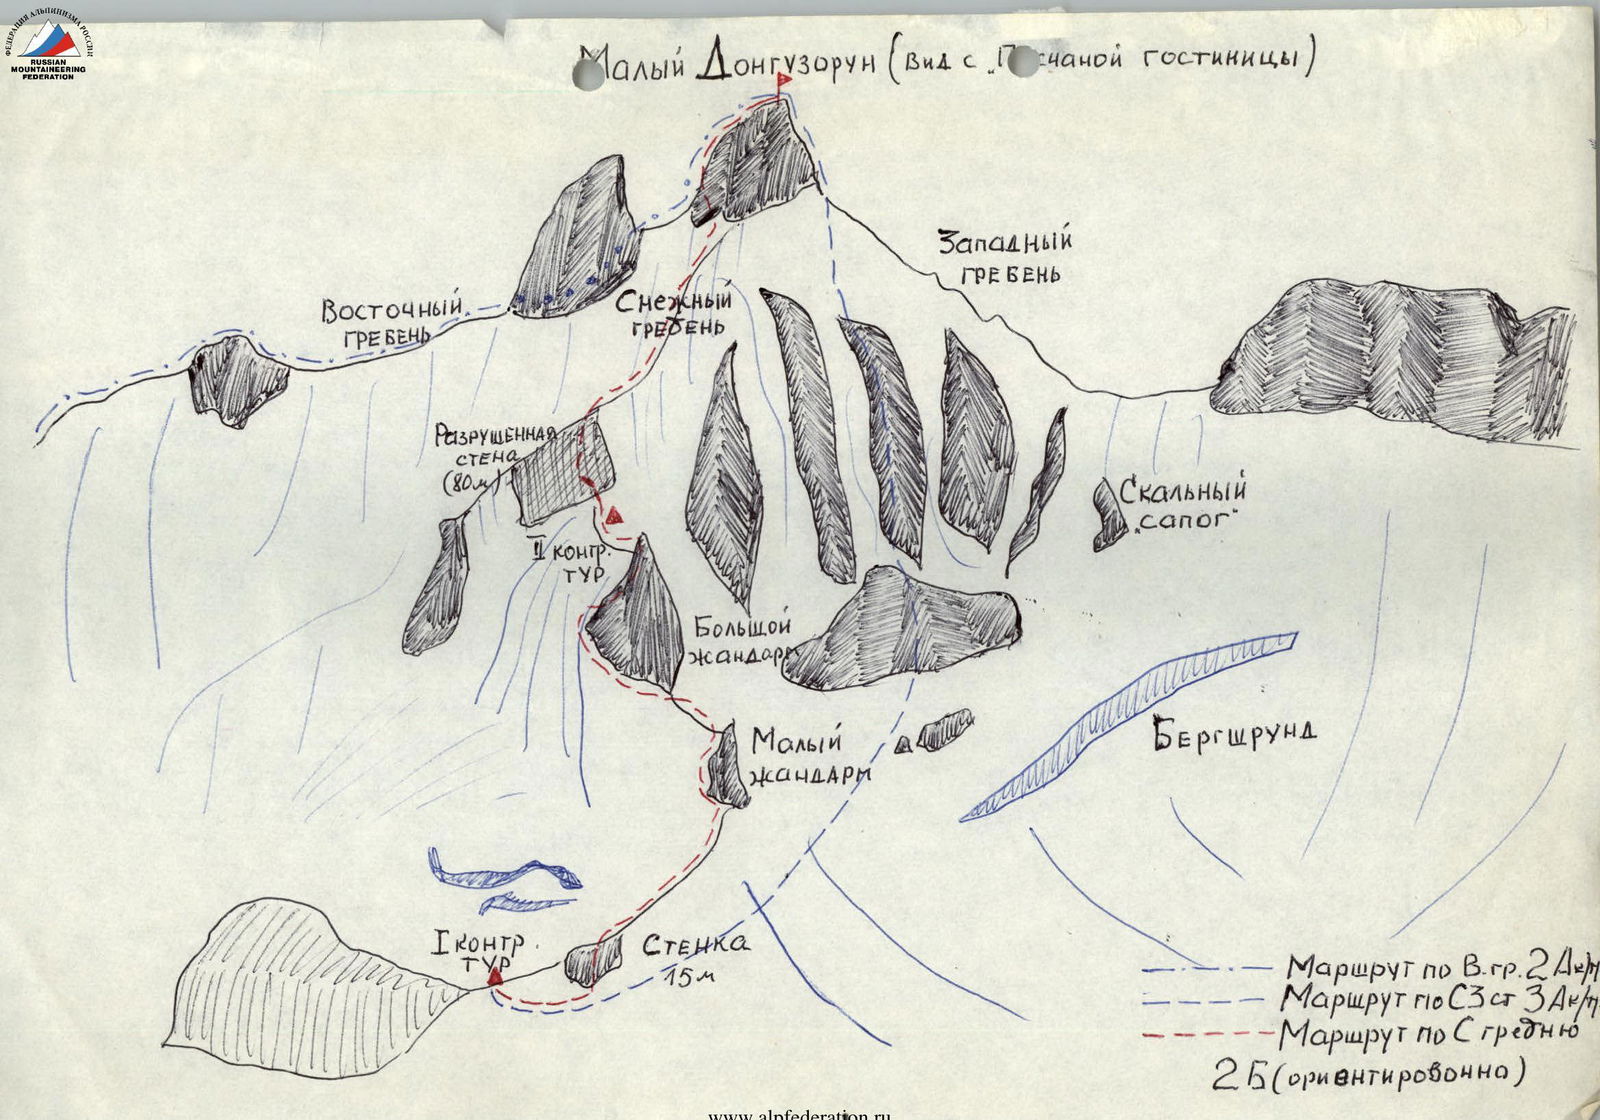 ФЕДЕРАЦИЯ АЛЬПИНИЗМА РОССИИ
RUSSIAN
MOUNTAINEERING
FEDERATION
Малый Донгузорун (вид с „ гостиницы)
Западный
гребень
Восточный
гребень
Снежный
гребень
Разрушенная
стена
(80м)
Скальный
„сапог"
II контр.
тур
Большой
жандарм
Малый
жандарм
Бергшрунд
I контр.
тур
Стенка
15м
Маршрут по В.гр. 2А к/т
Маршрут по СЗ ст 3А к/т
Маршрут по С гребню
2Б (ориентировочно)
www.alpfederation.ru